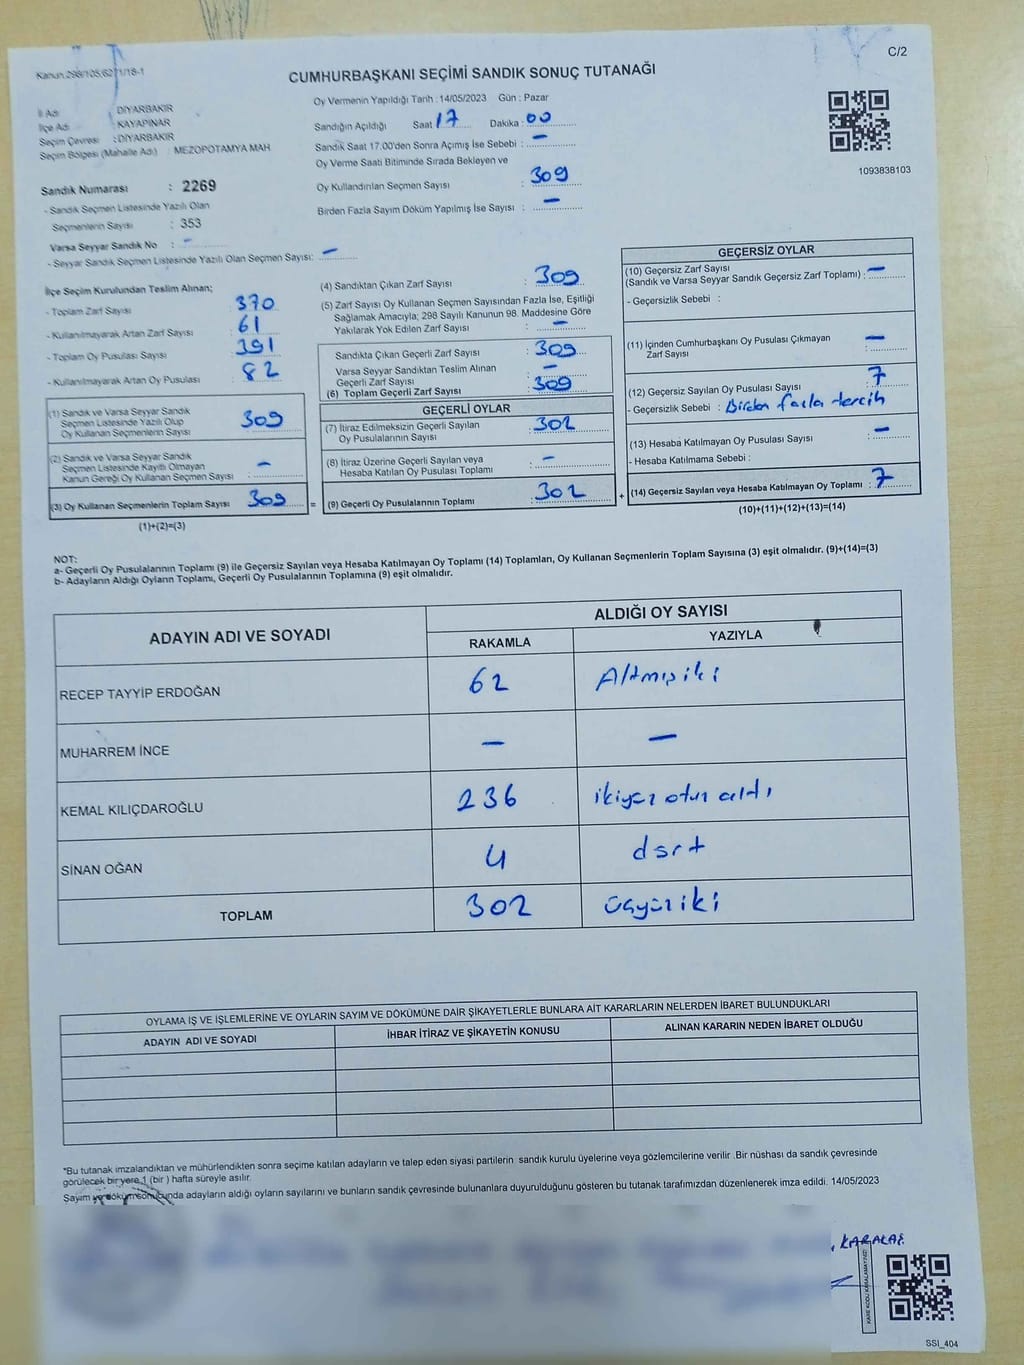 Kanun.298/105,6271/18-1
C/2
CUMHURBAŞKANI SEÇİMİ SANDIK SONUÇ TUTANAĞI
İl Adı : DİYARBAKIR
İlçe Adı : KAYAPINAR
Seçim Çevresi : DİYARBAKIR
Seçim Bölgesi (Mahalle Adı) : MEZOPOTAMYA MAH
Sandık Numarası : 2269
- Sandık Seçmen Listesinde Yazılı Olan
Seçmenlerin Sayısı : 353
Varsa Seyyar Sandık No : -
- Seyyar Sandık Seçmen Listesinde Yazılı Olan Seçmen Sayısı: -
Oy Vermenin Yapıldığı Tarih :14/05/2023 Gün : Pazar
Sandığın Açıldığı Saat : 17 Dakika : 00
Sandık Saat 17.00'den Sonra Açımış İse Sebebi : -
Oy Verme Saati Bitiminde Sırada Bekleyen ve
Oy Kullandırılan Seçmen Sayısı : 309
Birden Fazla Sayım Döküm Yapılmış İse Sayısı : -
1093838103
İlçe Seçim Kurulundan Teslim Alınan;
- Toplam Zarf Sayısı : 370
- Kullanılmayarak Artan Zarf Sayısı : 61
- Toplam Oy Pusulası Sayısı : 391
- Kullanılmayarak Artan Oy Pusulası : 82
(1) Sandık ve Varsa Seyyar Sandık
Seçmen Listesinde Yazılı Olup
Oy Kullanan Seçmenlerin Sayısı : 309
(2) Sandık ve Varsa Seyyar Sandık
Seçmen Listesinde Kayıtlı Olmayan
Kanun Gereği Oy Kullanan Seçmen Sayısı : -
(3) Oy Kullanan Seçmenlerin Toplam Sayısı : 309 =
(1)+(2)=(3)
(4) Sandıktan Çıkan Zarf Sayısı : 309
(5) Zarf Sayısı Oy Kullanan Seçmen Sayısından Fazla İse, Eşitliği
Sağlamak Amacıyla; 298 Sayılı Kanunun 98. Maddesine Göre
Yakılarak Yok Edilen Zarf Sayısı : -
Sandıkta Çıkan Geçerli Zarf Sayısı : 309
Varsa Seyyar Sandıktan Teslim Alınan
Geçerli Zarf Sayısı : -
(6) Toplam Geçerli Zarf Sayısı : 309
GEÇERLİ OYLAR
(7) İtiraz Edilmeksizin Geçerli Sayılan
Oy Pusulalarının Sayısı : 302
(8) İtiraz Üzerine Geçerli Sayılan veya
Hesaba Katılan Oy Pusulası Toplamı : -
(9) Geçerli Oy Pusulalarının Toplamı : 302 +
GEÇERSİZ OYLAR
(10) Geçersiz Zarf Sayısı
(Sandık ve Varsa Seyyar Sandık Geçersiz Zarf Toplamı) : -
- Geçersizlik Sebebi :
(11) İçinden Cumhurbaşkanı Oy Pusulası Çıkmayan
Zarf Sayısı : -
(12) Geçersiz Sayılan Oy Pusulası Sayısı : 7
- Geçersizlik Sebebi : Birden fazla tercih
(13) Hesaba Katılmayan Oy Pusulası Sayısı : -
- Hesaba Katılmama Sebebi :
(14) Geçersiz Sayılan veya Hesaba Katılmayan Oy Toplamı : 7
(10)+(11)+(12)+(13)=(14)
NOT:
a- Geçerli Oy Pusulalarının Toplamı (9) ile Geçersiz Sayılan veya Hesaba Katılmayan Oy Toplamı (14) Toplamları, Oy Kullanan Seçmenlerin Toplam Sayısına (3) eşit olmalıdır. (9)+(14)=(3)
b- Adayların Aldığı Oyların Toplamı, Geçerli Oy Pusulalarının Toplamına (9) eşit olmalıdır.
ADAYIN ADI VE SOYADI
ALDIĞI OY SAYISI
RAKAMLA YAZIYLA
RECEP TAYYİP ERDOĞAN 62 Altmışiki
MUHARREM İNCE - -
KEMAL KILIÇDAROĞLU 236 ikiyüz otuz altı
SİNAN OĞAN 4 dört
TOPLAM 302 üçyüziki
OYLAMA İŞ VE İŞLEMLERİNE VE OYLARIN SAYIM VE DÖKÜMÜNE DAİR ŞİKAYETLERLE BUNLARA AİT KARARLARIN NELERDEN İBARET BULUNDUKLARI
ADAYIN ADI VE SOYADI İHBAR İTİRAZ VE ŞİKAYETİN KONUSU ALINAN KARARIN NEDEN İBARET OLDUĞU
*Bu tutanak imzalandıktan ve mühürlendikten sonra seçime katılan adayların ve talep eden siyasi partilerin sandık kurulu üyelerine veya gözlemcilerine verilir .Bir nüshası da sandık çevresinde
görülecek bir yere 1 (bir ) hafta süreyle asılır.
Sayım ve döküm sonucunda adayların aldığı oyların sayılarını ve bunların sandık çevresinde bulunanlara duyurulduğunu gösteren bu tutanak tarafımızdan düzenlenerek imza edildi. 14/05/2023
KARE KODU KARALAMAYINIZ!
SSI_404